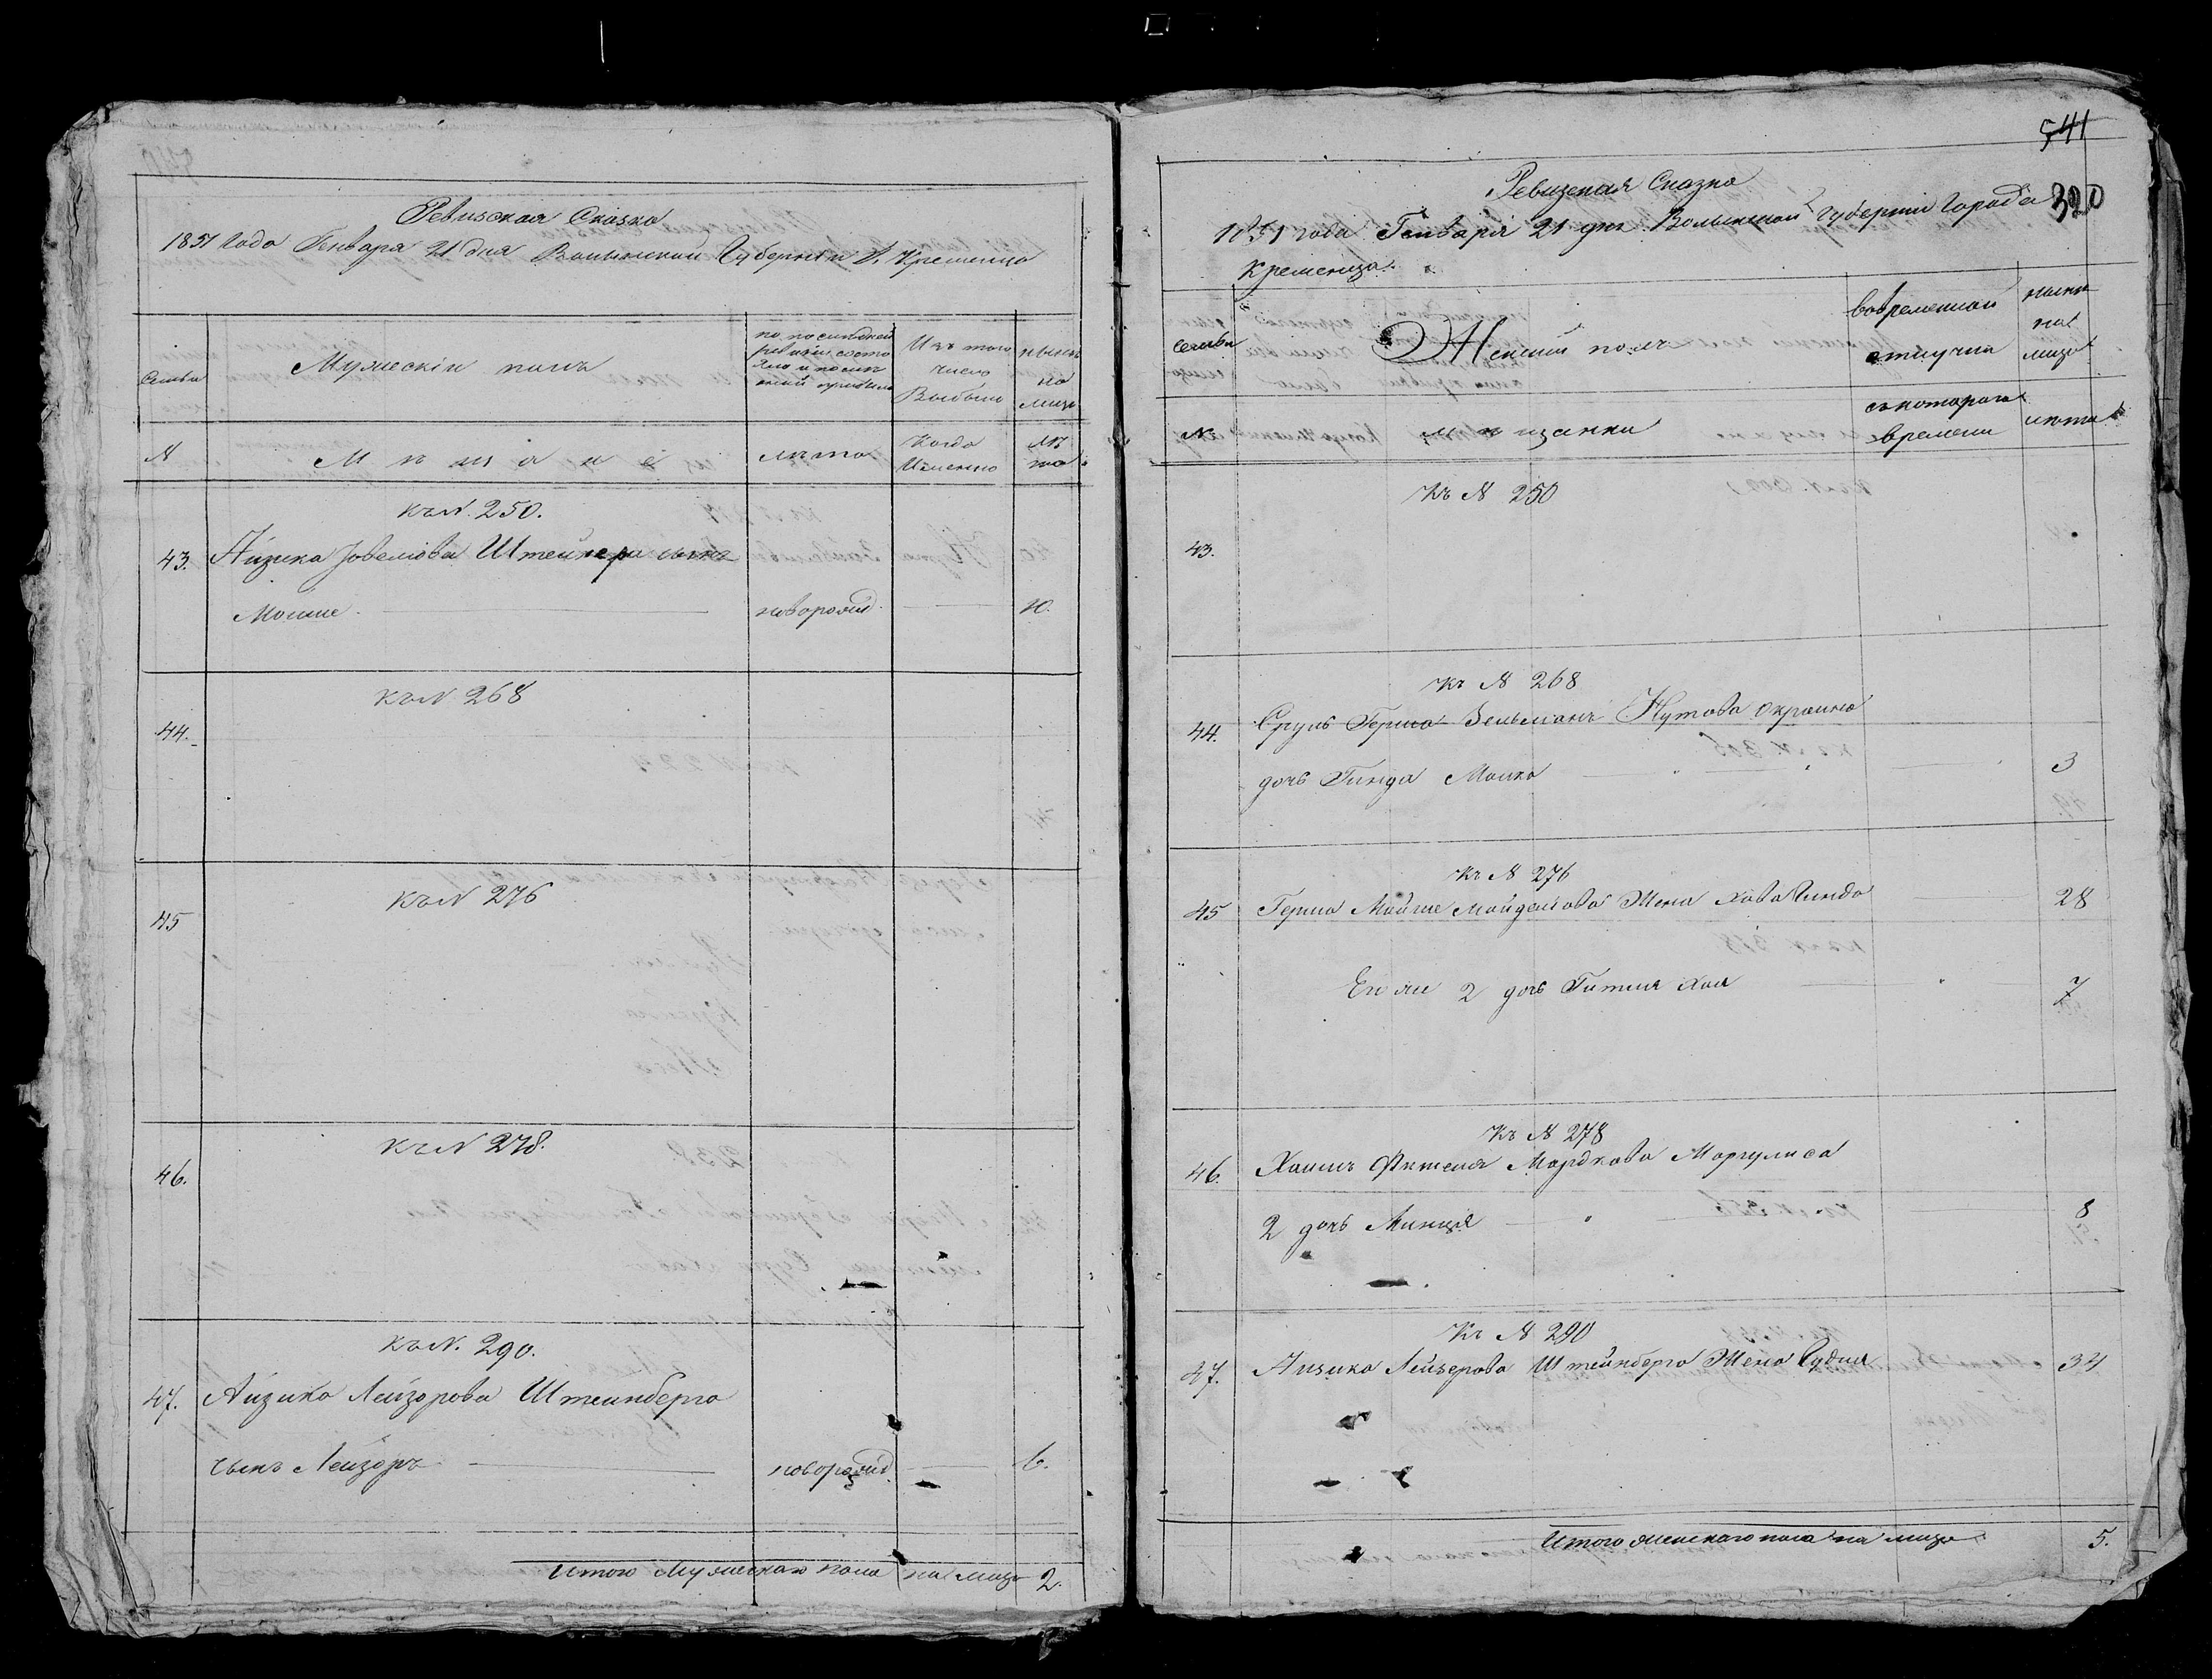 Ревизская Сказка
1851 Года Генваря 21 дня Волынской Губернии Г. Кременца
Семьи
Мужескій полъ
по последней
ревизіи состо
яло и после
оной прибыло
Изъ того
числа
Выбыло
нынѣ
на
лицо
№
Мѣщане
лѣта
Когда
Именно
лѣ
та
къ № 250.
43. Айзика Іовелiова Штейнера сынъ
Мошше новорожд. 10.
къ № 268
44.
къ № 276
45
къ № 278.
46.
къ № 290.
47. Айзика Лейзорова Штейнберга
сынъ Лейзоръ новорожд. 6.
Итого Мужескаго пола на лицо 2.
541
390
Ревизская Сказка
1851 года Генваря 21 дня Волынской Губерніи Города
Кременца.
Семьи
Женскій полъ
во временной
отлучке
ныне
на
лицо
№
мѣщанки
съ котораго
времени
лѣта
Къ № 250
43.
Къ № 268
44. Сруль Герша Зельманъ Нутова Окраина
дочь Гинда Малка 3
Къ № 276
45 Герша Мойше Майделiова Жена Хава Линда 28
Ея же 2 дочь Гитля Хая 7
Къ № 278
46. Хаимъ Фитела Мордкова Маргулиса
2 дочь Минця 8
Къ № 290
47. Айзика Лейзерова Штейнберга Жена Судия 34
Итого женскаго пола на лицо 5.